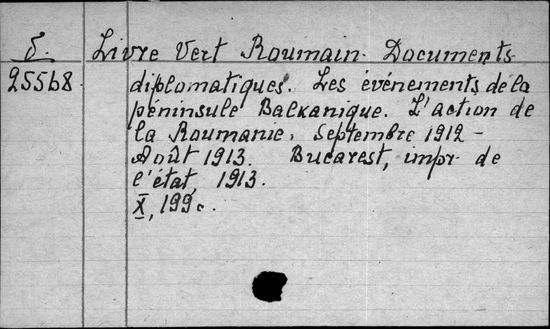 5. Livre Vert Roumain. Documents
25568 diplomatiques. Les événements de la
péninsule Balkanique. L'action de
la Roumanie, Septembre 1912 -
Août 1913. Bucarest, impr. de
l'état, 1913.
X, 199 c.